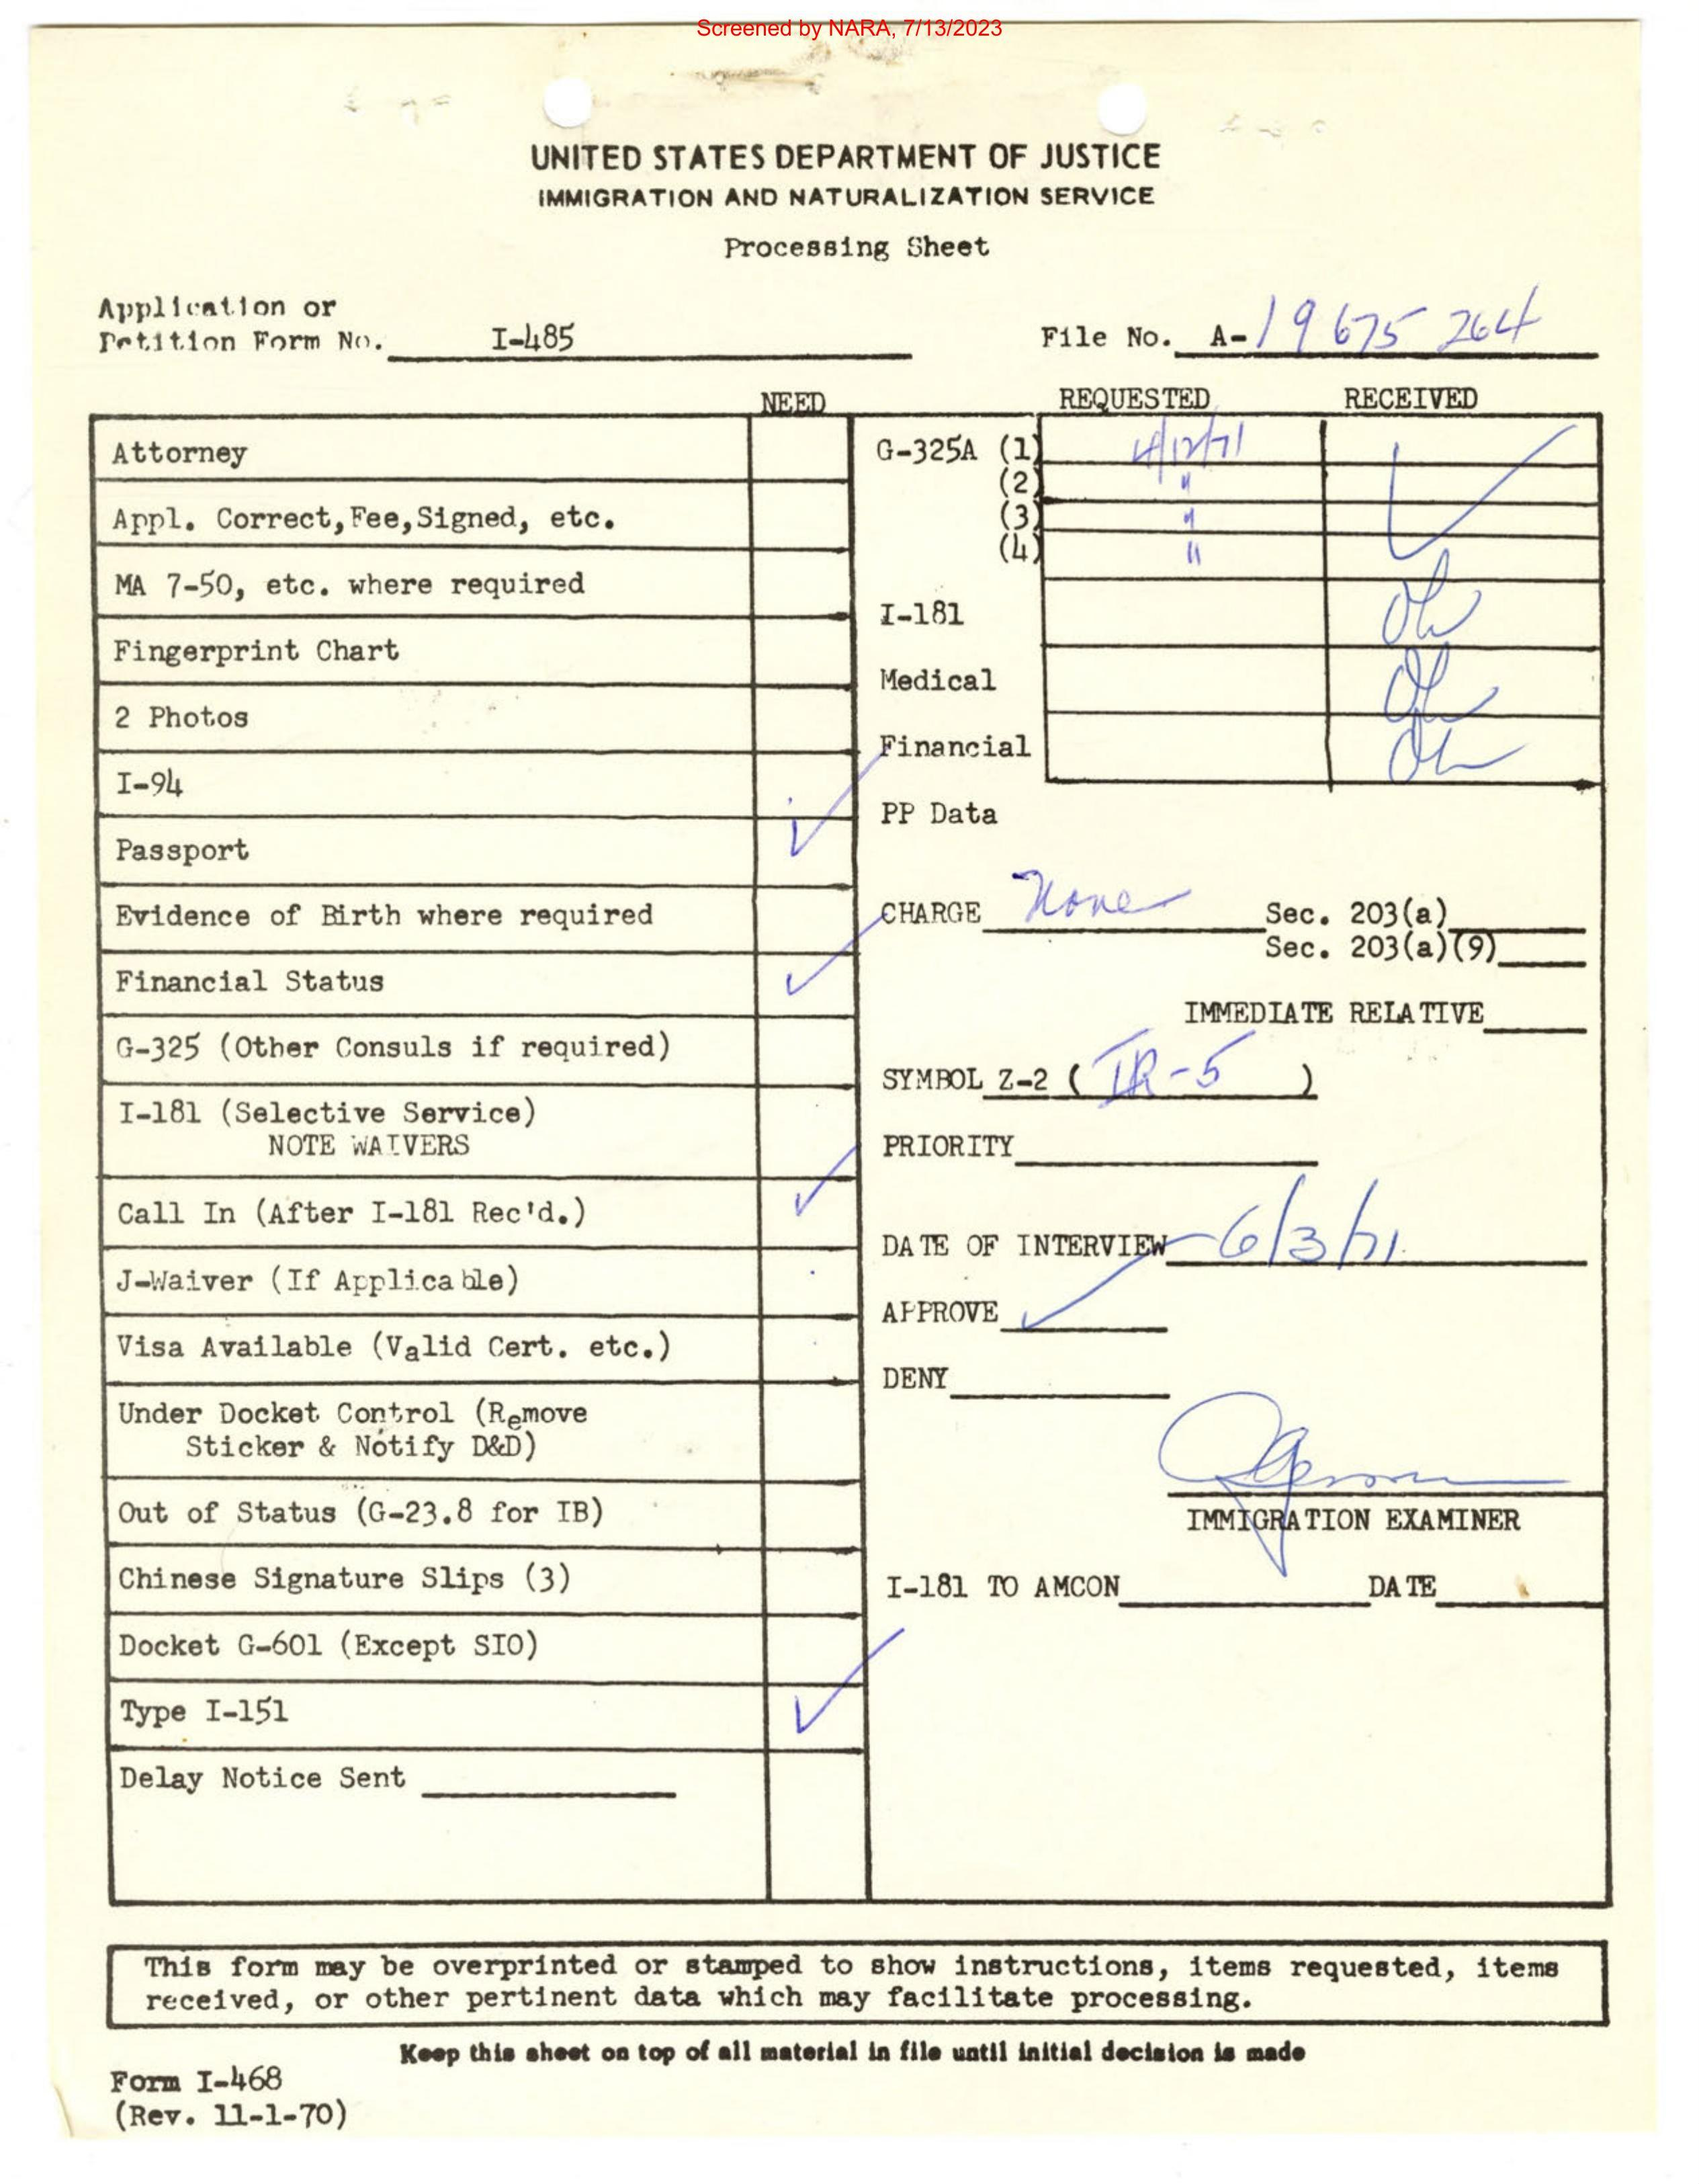 Screened by NARA, 7/13/2023
UNITED STATES DEPARTMENT OF JUSTICE
IMMIGRATION AND NATURALIZATION SERVICE
Processing Sheet
Application or
Petition Form No. I-485
File No. A-19 675 264
NEED
REQUESTED RECEIVED
Attorney
Appl. Correct, Fee, Signed, etc.
MA 7-50, etc. where required
Fingerprint Chart
2 Photos
I-94
Passport
Evidence of Birth where required
Financial Status
G-325 (Other Consuls if required)
I-181 (Selective Service)
NOTE WAIVERS
Call In (After I-181 Rec'd.)
J-Waiver (If Applicable)
Visa Available (Valid Cert. etc.)
Under Docket Control (Remove
Sticker & Notify D&D)
Out of Status (G-23.8 for IB)
Chinese Signature Slips (3)
Docket G-601 (Except SIO)
Type I-151
Delay Notice Sent
G-325A (1) 4/12/71 ✓
(2) "
(3) "
(4) "
I-181
Medical
Financial
PP Data
CHARGE None Sec. 203(a)
Sec. 203(a)(9)
IMMEDIATE RELATIVE
SYMBOL Z-2 ( IR-5 )
PRIORITY
DATE OF INTERVIEW 6/3/71
APPROVE ✓
DENY
IMMIGRATION EXAMINER
I-181 TO AMCON DATE
This form may be overprinted or stamped to show instructions, items requested, items
received, or other pertinent data which may facilitate processing.
Keep this sheet on top of all material in file until initial decision is made
Form I-468
(Rev. 11-1-70)